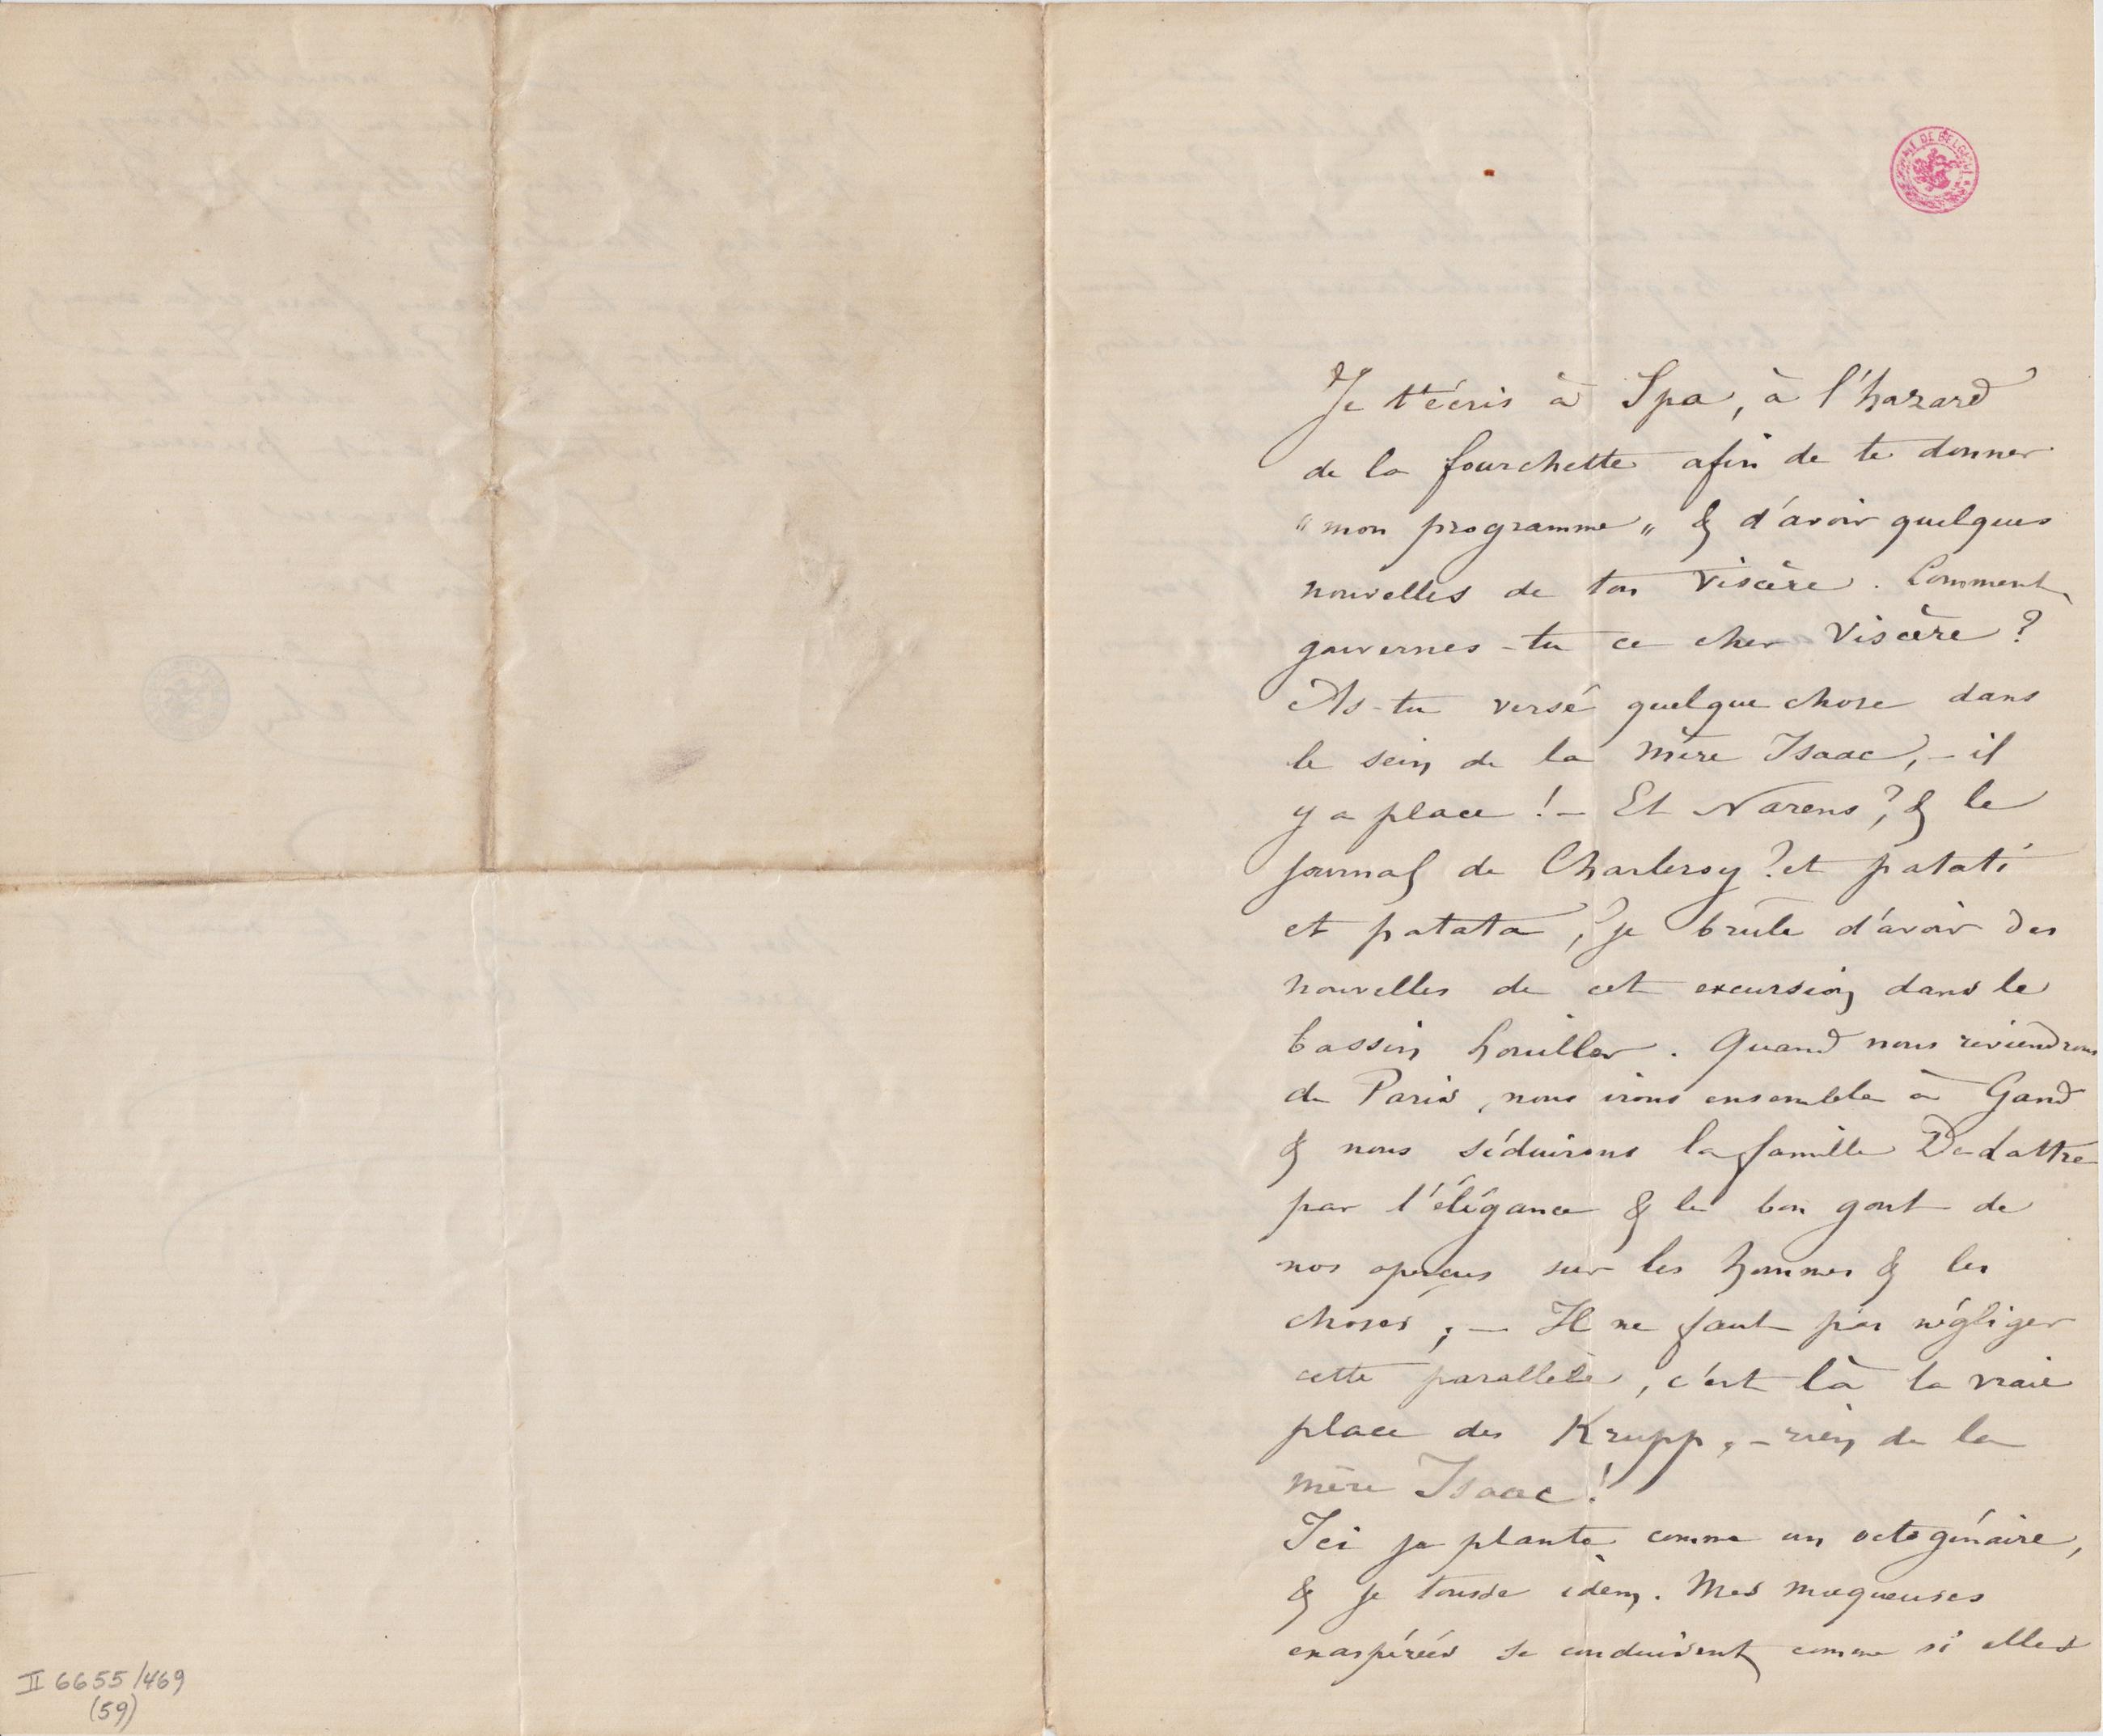 Je t'écris à Spa, à l'hazard
de la fourchette afin de te donner
"mon programme" & d'avoir quelques
nouvelles de ton viscère. Comment
gouvernes-tu ce cher Viscère ?
As-tu versé quelque chose dans
le sein de la mère Isaac, – il
y a place ! – Et Narens ?, & le
journal de Charleroy ? et patati
et patata, je brûle d'avoir des
nouvelles de cet excursion dans le
bassin houiller. Quand nous reviendrons
de Paris, nous irons ensemble à Gand
& nous séduirons la famille De Lattre
par l'élégance & le bon gout de
nos aperçus sur les hommes & les
choses ; – Il ne faut pas négliger
cette parallèle, c'est là la vraie
place des Krupp, – rien de la
mère Isaac !
Ici je plante comme un octogénaire,
& je tousse idem. Mes muqueuses
exaspérées se conduisent comme si elles
II 6655/469
(59)